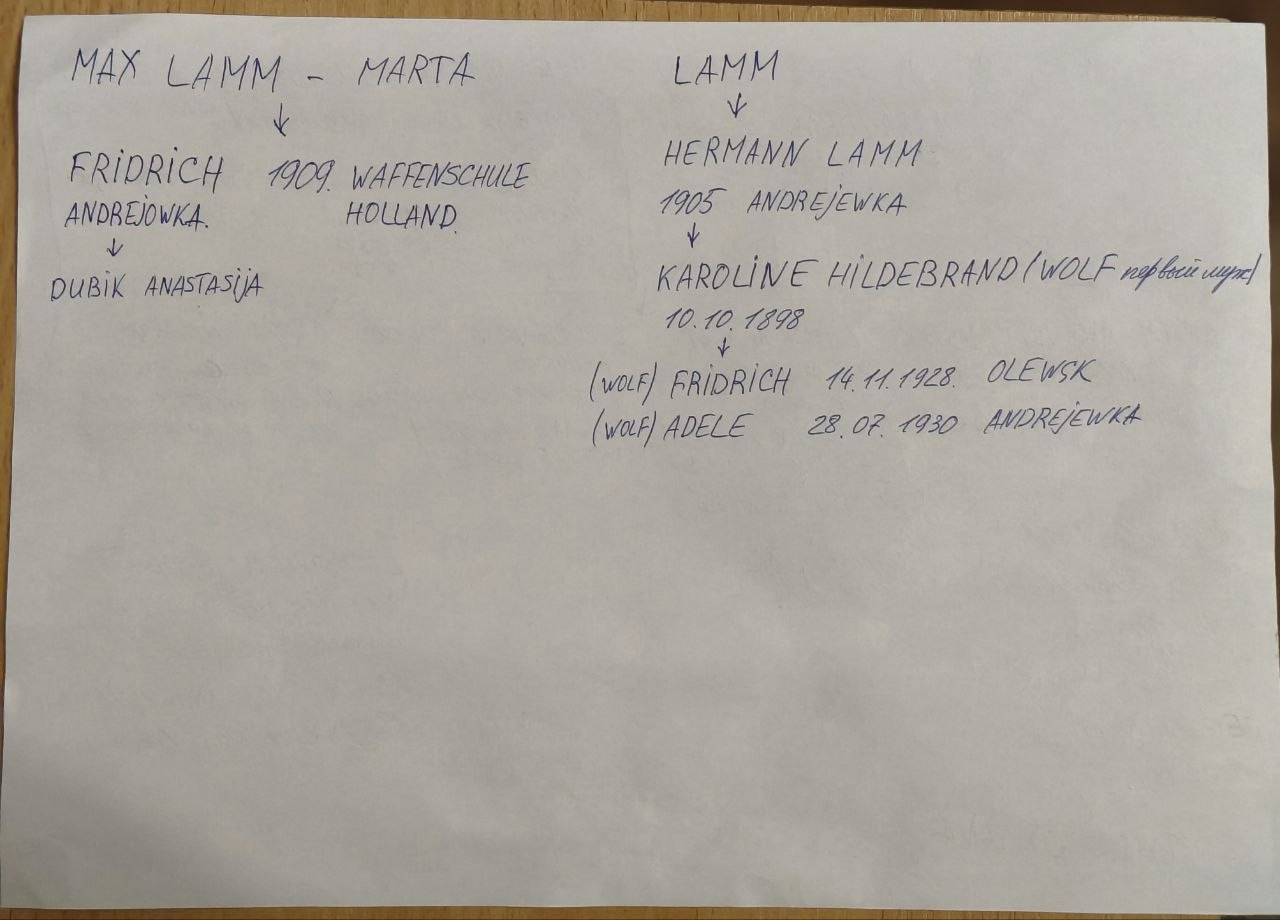 MAX LAMM - MARTA
↓
FRiDRiCH 1909. WAFFENSCHULE
ANDREJOWKA. HOLLAND.
↓
DUBiK ANASTASijA
LAMM
↓
HERMANN LAMM
1905 ANDREjEWKA
↓
KAROLiNE HiLDEBRAND (WOLF первый муж)
10.10.1898
↓
(WOLF) FRiDRiCH 14.11.1928. OLEWSK
(WOLF) ADELE 28.07.1930 ANDREjEWKA